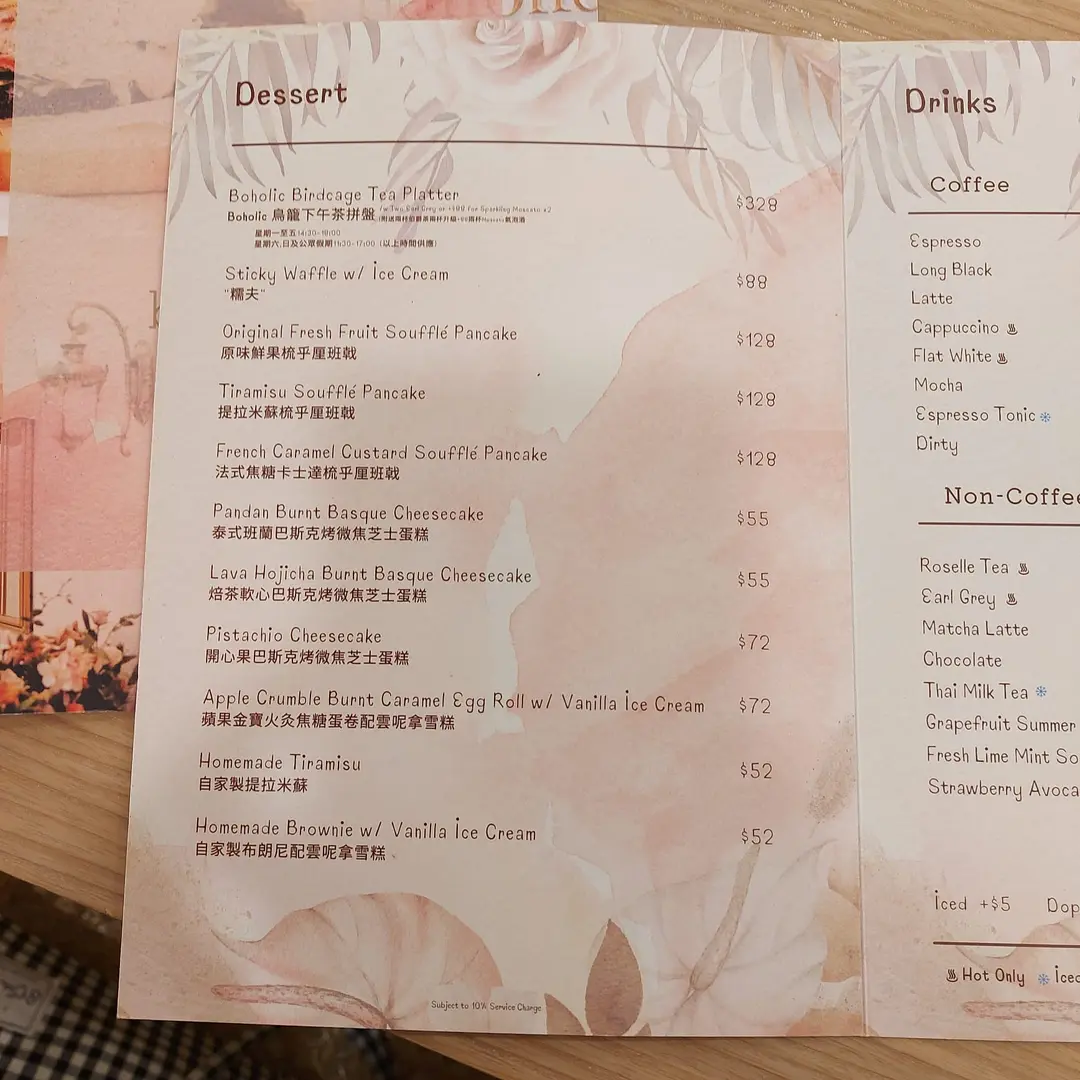 Dessert
Boholic Birdcage Tea Platter $328
/w Two Earl Grey or +$88 for Sparkling Moscato x2
Boholic 鳥籠下午茶拼盤
星期一至五 14:30-18:00
星期六,日及公眾假期 11:30-17:00 (以上時間供應)
Sticky Waffle w/ Ice Cream $88
"糯夫"
Original Fresh Fruit Soufflé Pancake $128
原味鮮果梳乎厘班戟
Tiramisu Soufflé Pancake $128
提拉米蘇梳乎厘班戟
French Caramel Custard Soufflé Pancake $128
法式焦糖卡士達梳乎厘班戟
Pandan Burnt Basque Cheesecake $55
泰式班蘭巴斯克烤微焦芝士蛋糕
Lava Hojicha Burnt Basque Cheesecake $55
焙茶軟心巴斯克烤微焦芝士蛋糕
Pistachio Cheesecake $72
開心果巴斯克烤微焦芝士蛋糕
Apple Crumble Burnt Caramel Egg Roll w/ Vanilla Ice Cream $72
蘋果金寶火灸焦糖蛋卷配雲呢拿雪糕
Homemade Tiramisu $52
自家製提拉米蘇
Homemade Brownie w/ Vanilla Ice Cream $52
自家製布朗尼配雲呢拿雪糕
Subject to 10% Service Charge
Drinks
Coffee
Espresso
Long Black
Latte
Cappuccino
Flat White
Mocha
Espresso Tonic
Dirty
Non-Coffee
Roselle Tea
Earl Grey
Matcha Latte
Chocolate
Thai Milk Tea
Grapefruit Summer
Fresh Lime Mint So
Strawberry Avoca
Iced +$5 Dop
Hot Only Iced